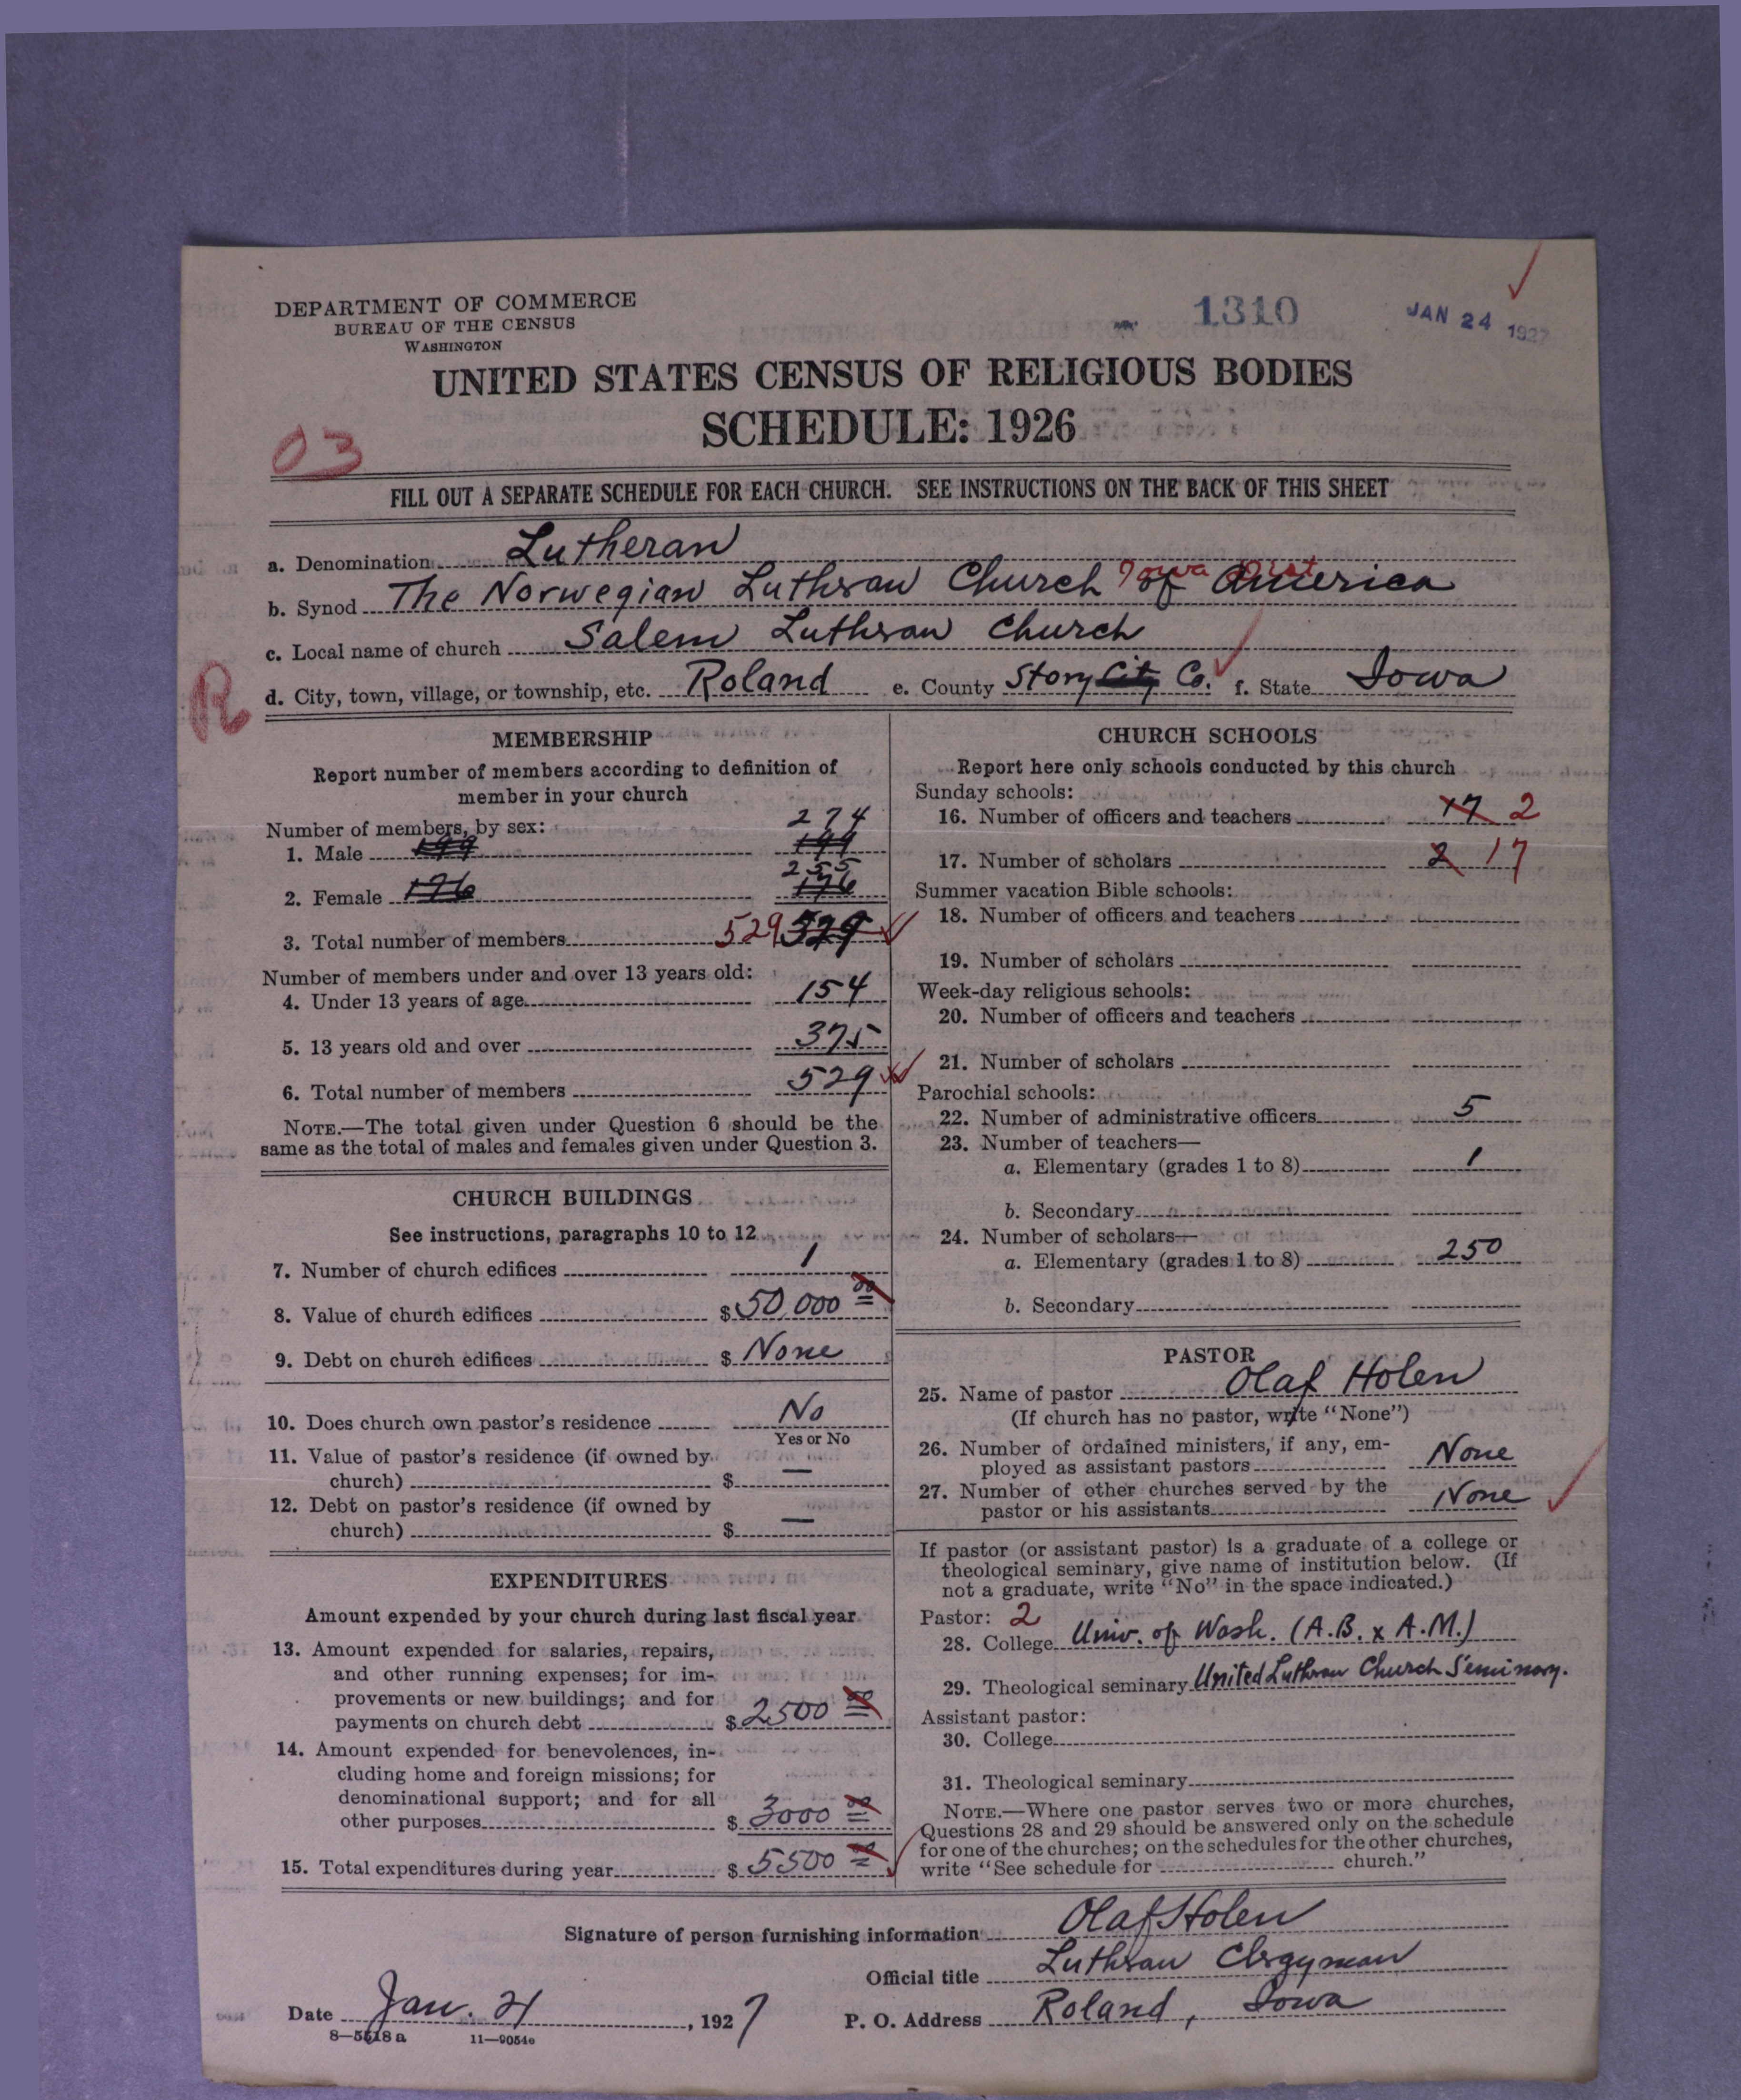 DEPARTMENT OF COMMERCE
BUREAU OF THE CENSUS
WASHINGTON
1310
JAN 24 1927
UNITED STATES CENSUS OF RELIGIOUS BODIES
SCHEDULE: 1926
03
FILL OUT A SEPARATE SCHEDULE FOR EACH CHURCH. SEE INSTRUCTIONS ON THE BACK OF THIS SHEET
a. Denomination Lutheran
Iowa Dist
b. Synod The Norwegian Lutheran Church of America
c. Local name of church Salem Lutheran Church
R
d. City, town, village, or township, etc. Roland e. County Story City Co. f. State Iowa
MEMBERSHIP
Report number of members according to definition of
member in your church
Number of members, by sex:
274
1. Male 199 199
255
2. Female 176 176
3. Total number of members 529 529
Number of members under and over 13 years old:
4. Under 13 years of age 154
5. 13 years old and over 375
6. Total number of members 529
NOTE.—The total given under Question 6 should be the
same as the total of males and females given under Question 3.
CHURCH BUILDINGS
See instructions, paragraphs 10 to 12
7. Number of church edifices 1
8. Value of church edifices $ 50,000 00
9. Debt on church edifices $ None
10. Does church own pastor's residence No
Yes or No
11. Value of pastor's residence (if owned by
church) $ —
12. Debt on pastor's residence (if owned by
church) $ —
EXPENDITURES
Amount expended by your church during last fiscal year
13. Amount expended for salaries, repairs,
and other running expenses; for im-
provements or new buildings; and for
payments on church debt $ 2500 00
14. Amount expended for benevolences, in-
cluding home and foreign missions; for
denominational support; and for all
other purposes $ 3000 00
15. Total expenditures during year $ 5500 00
CHURCH SCHOOLS
Report here only schools conducted by this church
Sunday schools:
16. Number of officers and teachers 17 2
17. Number of scholars 2 17
Summer vacation Bible schools:
18. Number of officers and teachers
19. Number of scholars
Week-day religious schools:
20. Number of officers and teachers
21. Number of scholars
Parochial schools:
22. Number of administrative officers 5
23. Number of teachers—
a. Elementary (grades 1 to 8) 1
b. Secondary
24. Number of scholars—
a. Elementary (grades 1 to 8) 250
b. Secondary
PASTOR
25. Name of pastor Olaf Holen
(If church has no pastor, write "None")
26. Number of ordained ministers, if any, em-
ployed as assistant pastors None
27. Number of other churches served by the
pastor or his assistants None
If pastor (or assistant pastor) is a graduate of a college or
theological seminary, give name of institution below. (If
not a graduate, write "No" in the space indicated.)
Pastor: 2
28. College Univ. of Wash. (A.B. x A.M.)
29. Theological seminary United Lutheran Church Seminary.
Assistant pastor:
30. College
31. Theological seminary
NOTE.—Where one pastor serves two or more churches,
Questions 28 and 29 should be answered only on the schedule
for one of the churches; on the schedules for the other churches,
write "See schedule for church."
Signature of person furnishing information Olaf Holen
Official title Lutheran Clergyman
Date Jan. 21, 1927 P. O. Address Roland, Iowa
8—5518 a 11—9054e